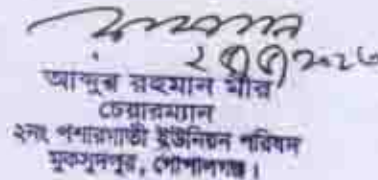 আব্দুর রহমান মীর
চেয়ারম্যান
২নং পশারগাতী ইউনিয়ন পরিষদ
মুকসুদপুর, গোপালগঞ্জ।